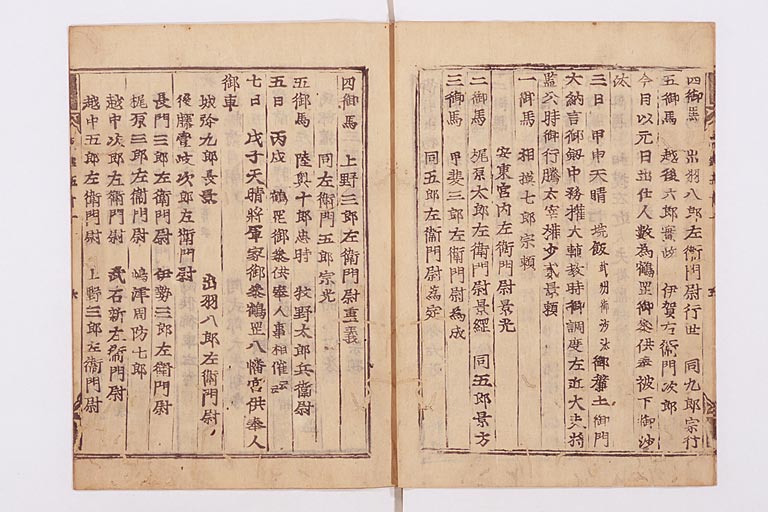 四御馬 出羽八郎左衛門尉行世 同九郎宗行
五御馬 越後六郎實政 伊賀右衛門次郎
今月以元日出仕人数為鶴罡御参供奉被下御沙
汰
三日 甲申天晴 垸飯 御沙汰 御簾土御門
大納言御釼中務権大輔教時御調度左近大夫将
監公時御行騰太宰権少貳景頼
一御馬 相摸七郎宗頼
安東宮内左衛門尉景光
二御馬 梶原太郎左衛門尉景經 同五郎景方
三御馬 甲斐三郎左衛門尉為成
同五郎左衛門尉為定
四御馬 上野三郎左衛門尉重義
同左衛門五郎宗光
五御馬 陸奥十郎忠時 牧野太郎兵衛尉
五日 丙戌 鶴罡御参供奉人事相催云云
七日 戊子天晴將軍家御参鶴罡八幡宮供奉人
御車
城弥九郎長景 出羽八郎左衛門尉
後藤壹岐次郎左衛門尉
長門三郎左衛門尉 伊勢三郎左衛門尉
梶原三郎左衛門尉 嶋津周防七郎
越中次郎左衛門尉 武石新左衛門尉
越中五郎左衛門尉 上野三郎左衛門尉